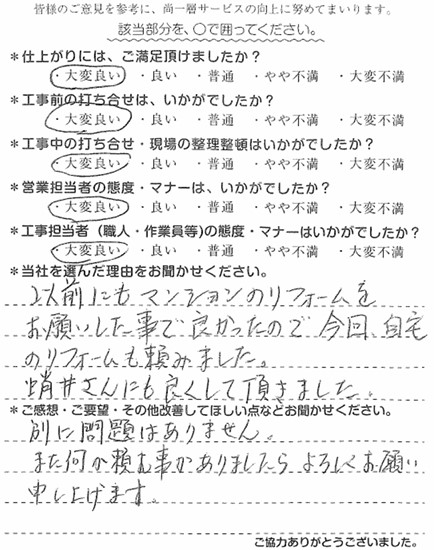 皆様のご意見を参考に、尚一層サービスの向上に努めてまいります。
該当部分を、○で囲ってください。
*仕上がりには、ご満足頂けましたか?
・大変良い ・良い ・普通 ・やや不満 ・大変不満
*工事前の打ち合せは、いかがでしたか?
・大変良い ・良い ・普通 ・やや不満 ・大変不満
*工事中の打ち合せ・現場の整理整頓はいかがでしたか?
・大変良い ・良い ・普通 ・やや不満 ・大変不満
*営業担当者の態度・マナーは、いかがでしたか?
・大変良い ・良い ・普通 ・やや不満 ・大変不満
*工事担当者(職人・作業員等)の態度・マナーはいかがでしたか?
・大変良い ・良い ・普通 ・やや不満 ・大変不満
*当社を選んだ理由をお聞かせください。
以前にもマンションのリフォームを
お願いした事で良かったので、今回、自宅
のリフォームも頼みました。
蛸井さんにも良くして頂きました。
*ご感想・ご要望・その他改善してほしい点などお聞かせください。
別に問題はありません。
また何か頼む事がありましたら よろしくお願い
申し上げます。
ご協力ありがとうございました。